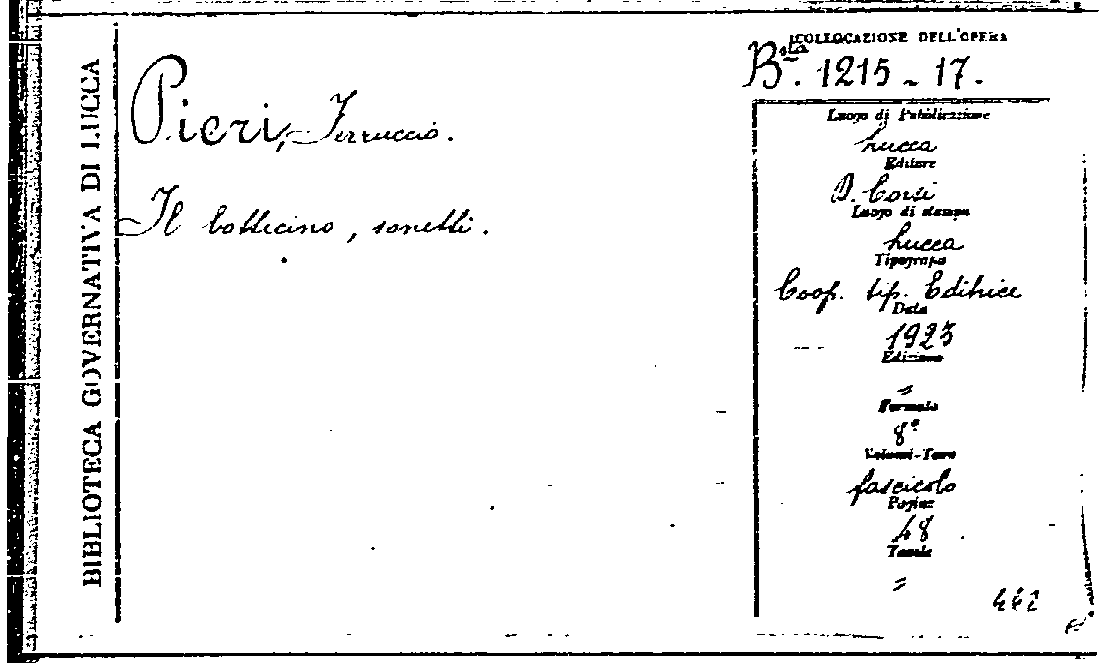 BIBLIOTECA GOVERNATIVA DI LUCCA
Pieri, Ferruccio.
Il botticino, sonetti.
COLLOCAZIONE DELL'OPERA
Bta. 1215 - 17.
Luogo di Pubblicazione
Lucca
Editore
D. Corsi
Luogo di stampa
Lucca
Tipografo
Coop. tip. Editrice
Data
1923
Edizione
=
Formato
8°
Volumi-Tomo
fascicolo
Pagine
48
Tavole
=
442